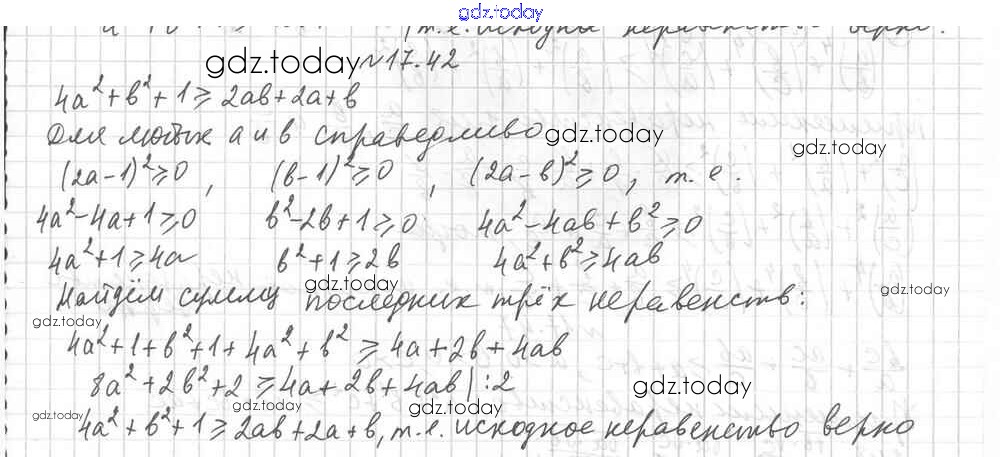 gdz.today
(т.е. исходн нерав
gdz.today №17.42
4a²+b²+1⩾2ab+2a+b
Для любых a и b справедливо gdz.today
gdz.today
(2a-1)²⩾0, (b-1)²⩾0, (2a-b)²⩾0, т.е.
4a²-4a+1⩾0 b²-2b+1⩾0 4a²-4ab+b²⩾0
4a²+1⩾4a b²+1⩾2b 4a²+b²⩾4ab
gdz.today gdz.today
Найдём сумму последних трёх неравенств:
gdz.today
4a²+1+b²+1+4a²+b²⩾4a+2b+4ab
8a²+2b²+2⩾4a+2b+4ab|:2 gdz.today
gdz.today gdz.today gdz.today
4a²+b²+1⩾2ab+2a+b, т.е. исходное неравенство верно